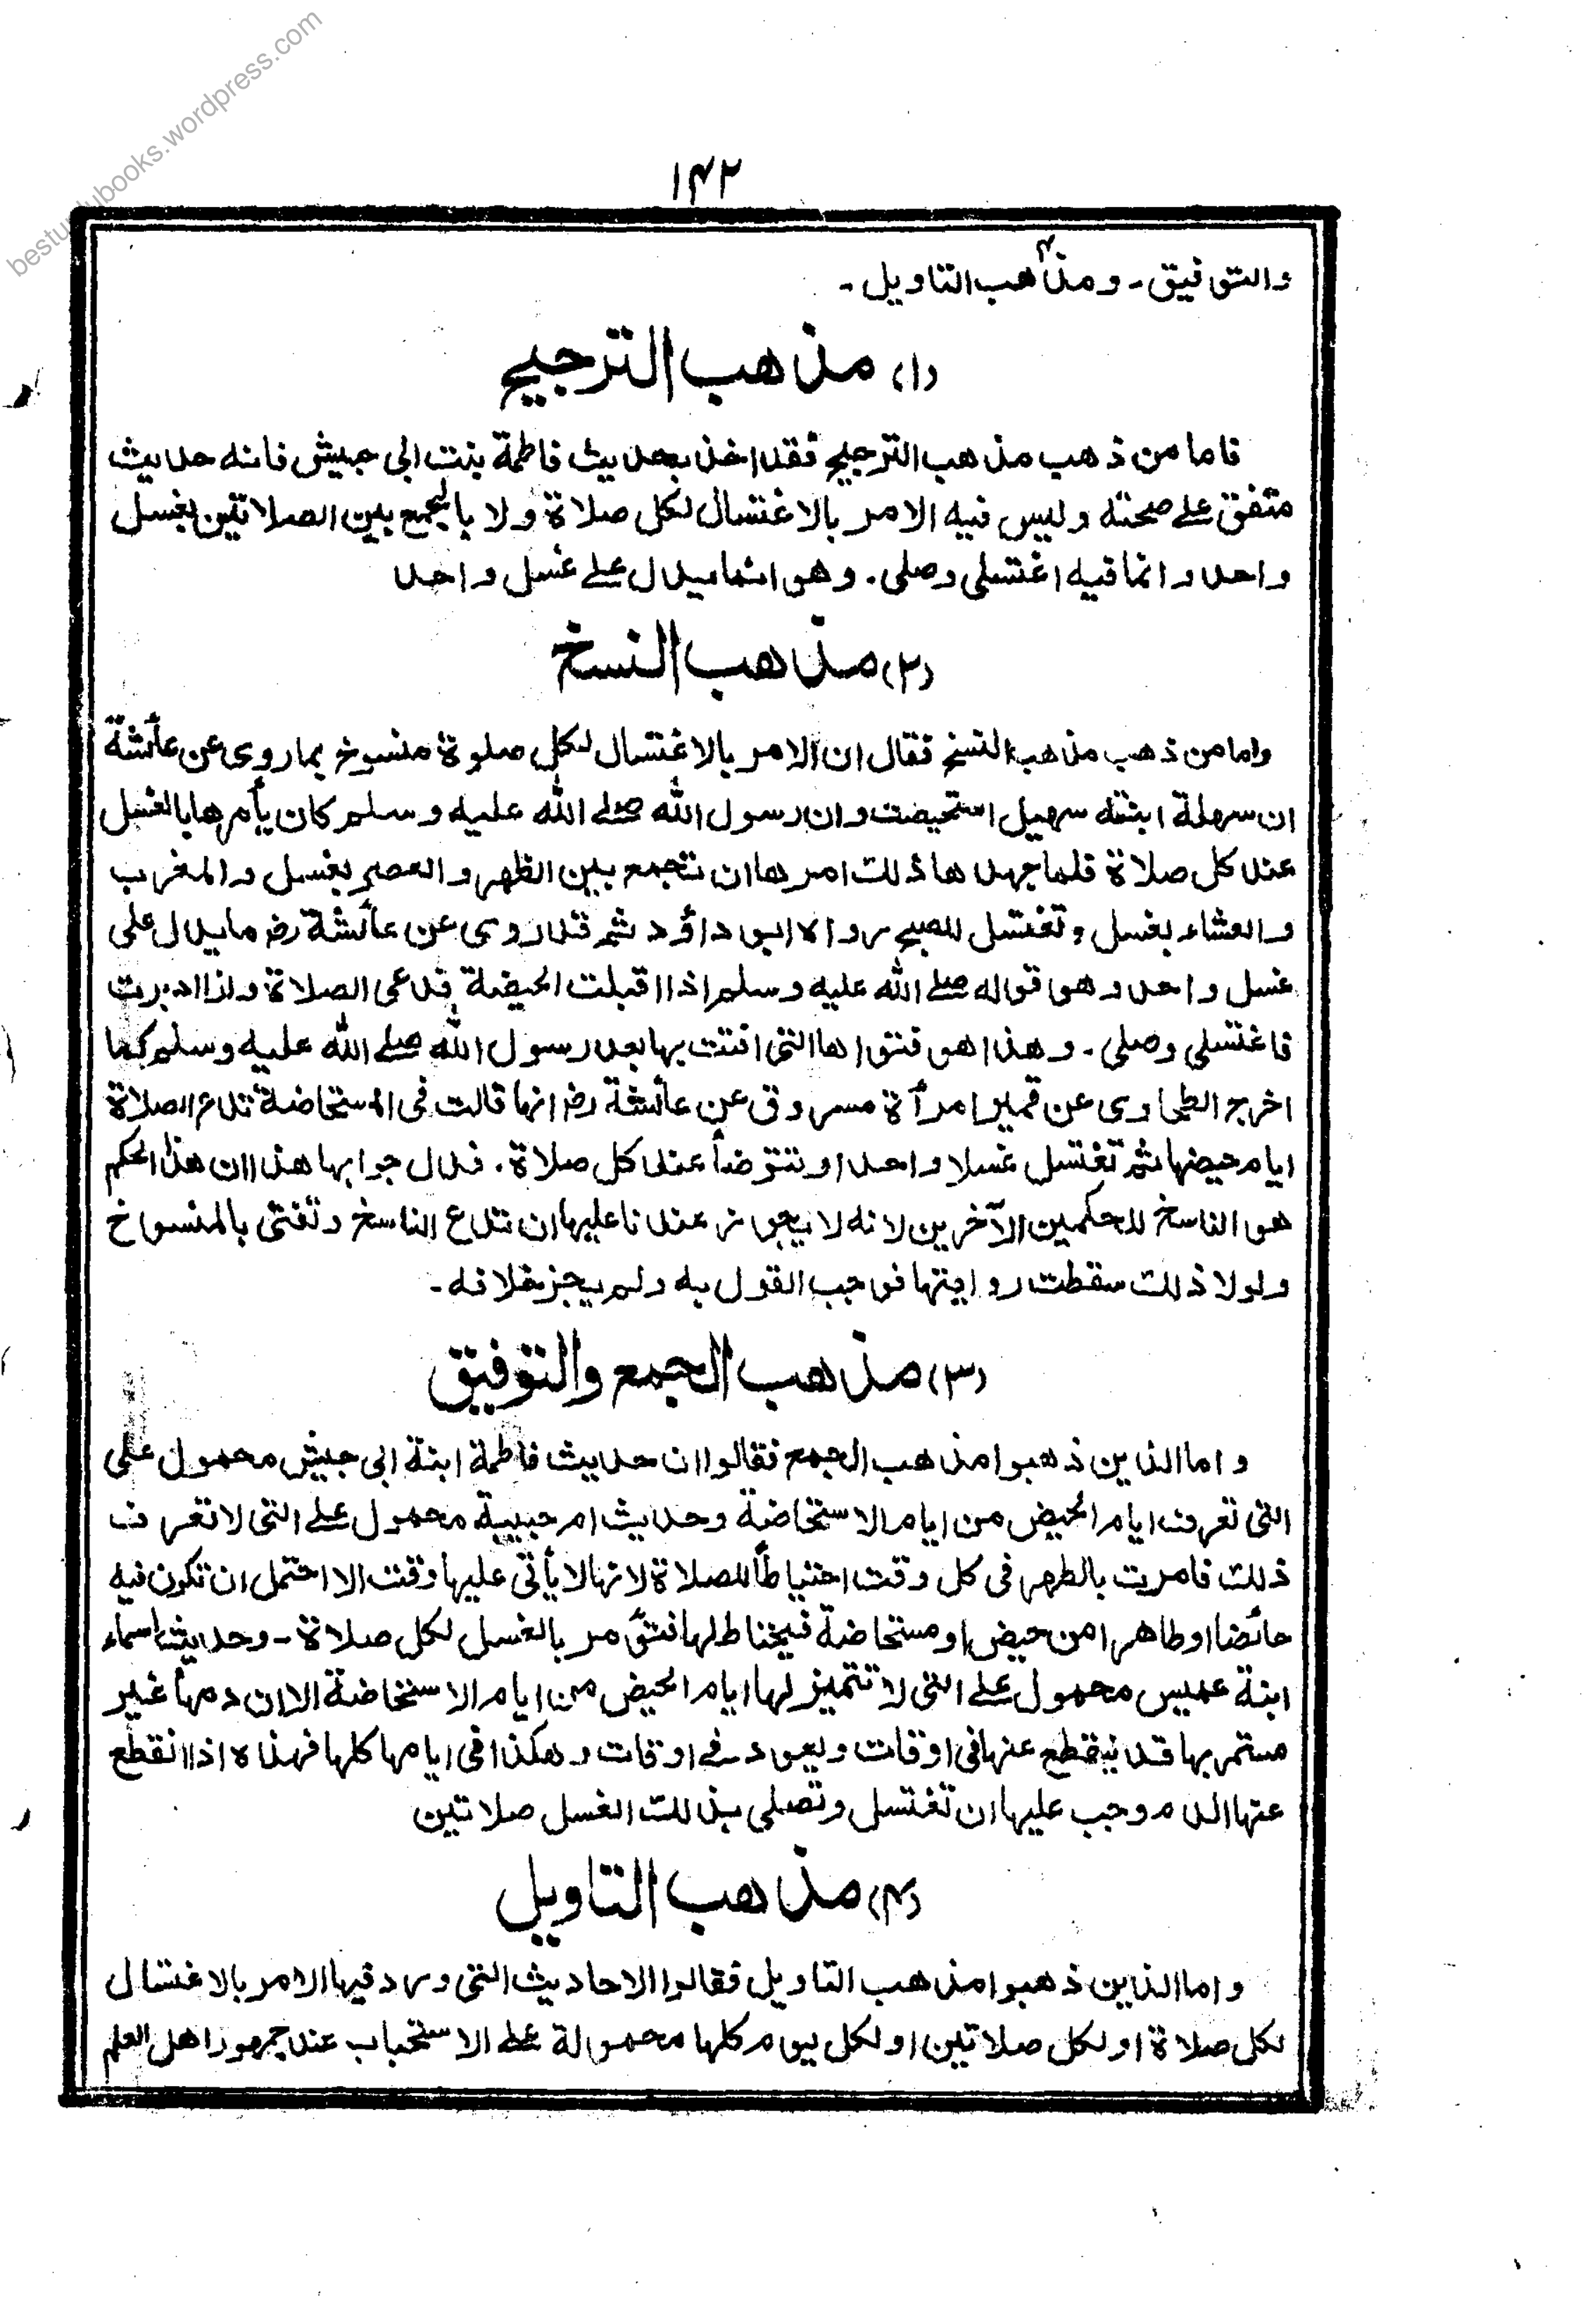 besturdubooks.wordpress.com
۱۴۲
والتوفيق ـ ومذ۴هب التاويل ـ
(۱) مذهب الترجيح
فاما من ذهب مذهب الترجيح فقد اخذ بحديث فاطمة بنت ابى حبيش فانه حديث
متفق على صحته وليس فيه الامر بالاغتسال لكل صلاة ولا بالجمع بين الصلاتين بغسل
واحد وانما فيه اغتسلى وصلى . وهو انما يدل على غسل واحد
(۲) مذهب النسخ
واما من ذهب مذهب النسخ فقال ان الامر بالاغتسال لكل صلوة منسوخ بما روى عن عائشة
ان سهلة ابنته سهيل استحيضت وان رسول الله صلى الله عليه وسلم كان يأمرها بالغسل
عند كل صلاة فلما جهدها ذلك امرها ان تجمع بين الظهر والعصر بغسل والمغرب
والعشاء بغسل وتغتسل للصبح رواه ابوداؤد ثم قد روى عن عائشة رض ما يدل على
غسل واحد وهو قوله صلى الله عليه وسلم اذا اقبلت الحيضة فدعى الصلاة واذا ادبرت
فاغتسلى وصلى . وهذا هو فتواها التى افتت بها بعد رسول الله صلى الله عليه وسلم كما
اخرج الطحاوى عن قمير امرأة مسروق عن عائشة رض انها قالت فى المستحاضة تدع الصلاة
ايام حيضها ثم تغتسل غسلا واحدا وتتوضأ عند كل صلاة . فدل جوابها هذا ان هذا الحكم
هو الناسخ للحكمين الآخرين لانه لا يجوز عندنا عليها ان تدع الناسخ وتفتى بالمنسوخ
ولولا ذلك سقطت روايتها فوجب القول به ولم يجز خلافه ـ
(۳) مذهب الجمع والتوفيق
واما الذين ذهبوا مذهب الجمع فقالوا ان حديث فاطمة ابنة ابى حبيش محمول على
التى تعرف ايام الحيض من ايام الاستحاضة وحديث ام حبيبة محمول على التى لا تعرف
ذلك فامرت بالطهر فى كل وقت احتياطاً للصلاة لانها لا يأتى عليها وقت الا احتمل ان تكون فيه
حائضا او طاهرا من حيض او مستحاضة فيحتاط لها فتؤمر بالغسل لكل صلاة ـ وحديث اسماء
ابنة عميس محمول على التى لا تتميز لها ايام الحيض من ايام الاستحاضة الا ان دمها غير
مستمر بها قد ينقطع عنها فى اوقات ويعود فى اوقات وهكذا فى ايامها كلها فهذه اذا انقطع
عنها الدم وجب عليها ان تغتسل وتصلى بذلك الغسل صلاتين
(۴) مذهب التاويل
واما الذين ذهبوا مذهب التاويل فقالوا الاحاديث التى ورد فيها الامر بالاغتسال
لكل صلاة او لكل صلاتين او لكل يوم كلها محمولة على الاستحباب عند جمهور اهل العلم